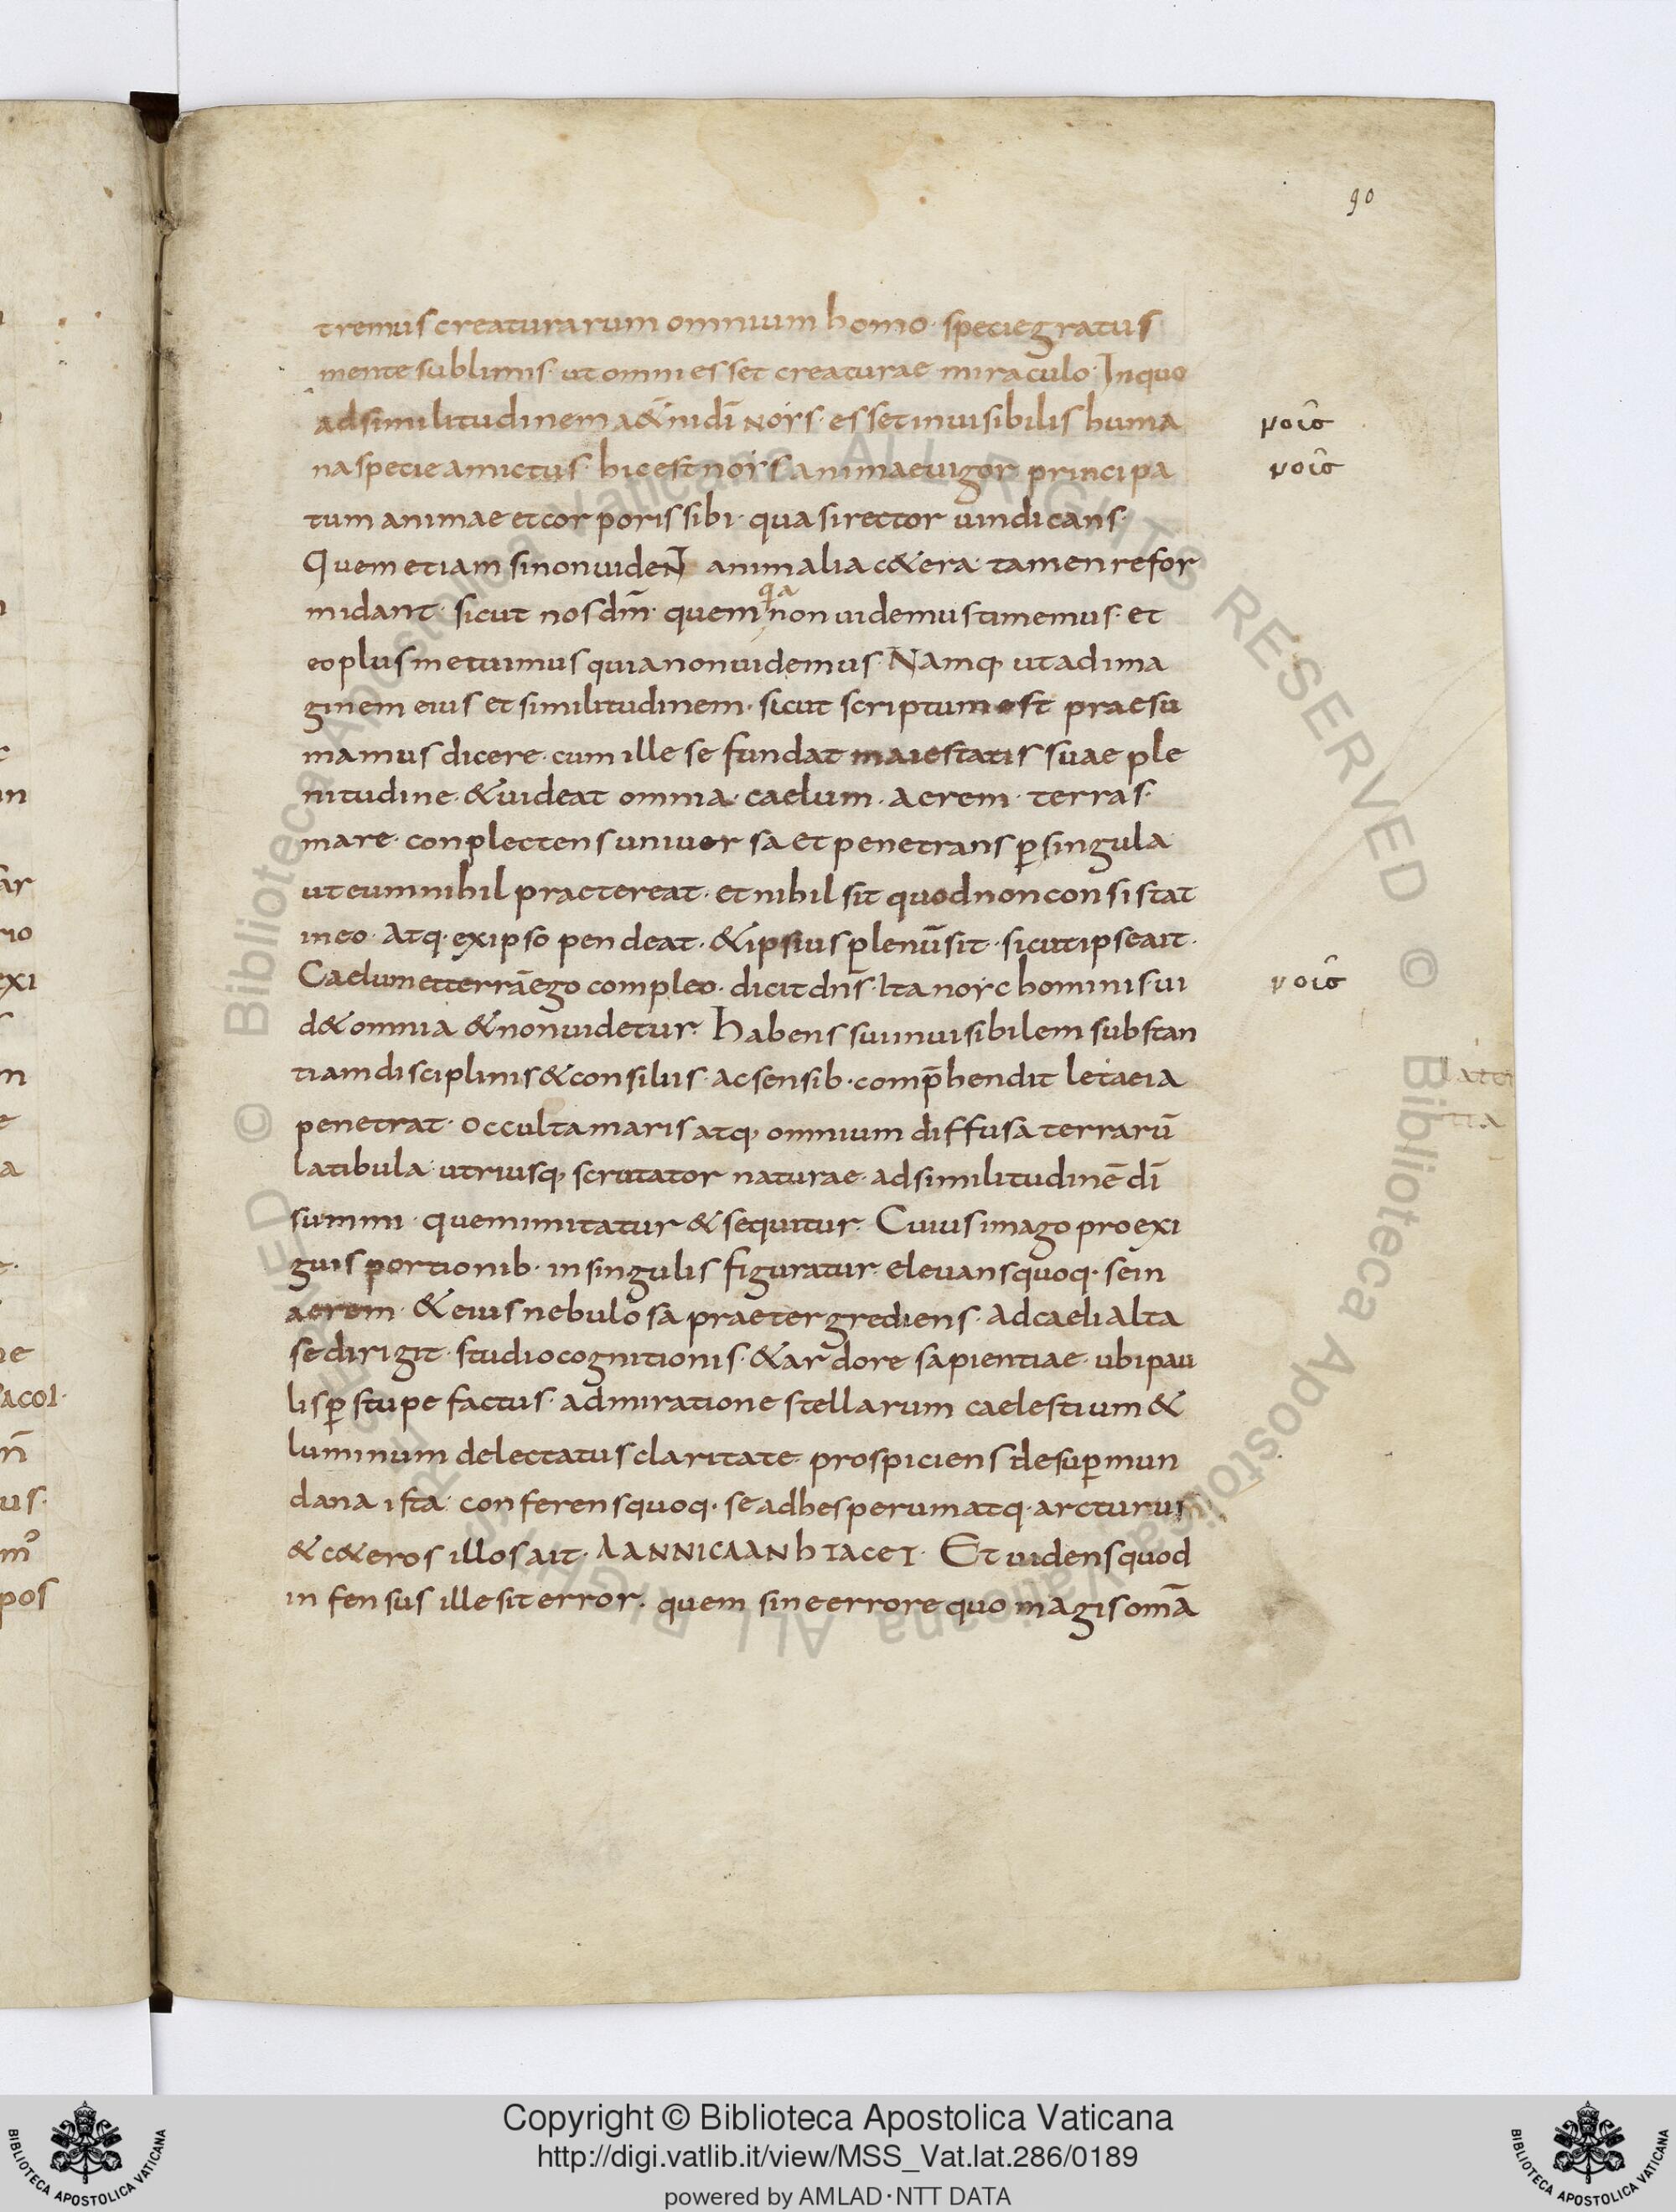 90
tremus creaturarum omnium homo· specie gratus
mente sublimis· ut omni esset creaturae miraculo· In quo
ad similitudinem a&̄ni dī noys· esset inuisibilis huma
na specie amictus· hic est noys animae uigor principa
tum animae et corporis sibi· quasi rector uindicans·
Quem etiam si non uideNT animalia c&era· tamen refor
midant· sicut nos dm̄· quem non uidemus timemus· et
qa
eo plus metuimus quia non uidemus· Namq· ut ad ima
ginem eius et similitudinem· sicut scriptum est praesu
mamus dicere· cum ille se fundat maiestatis suae ple
nitudine· & uideat omnia· caelum· aerem· terras·
mare· conplectens uniuersa et penetrans p̄ singula
ut eum nihil praetereat· et nihil sit quod non consistat
in eo· Atq· ex ipso pendeat· & ipsius plenū sit· sicut ipse ait·
Caelum et terrā ego compleo· dicit dn̄s· Ita noyc hominis ui
d& omnia & non uidetur· habens sui inuisibilem substan
tiam disciplinis & consiliis· ac sensib· comp̄hendit letaeia
penetrat· occulta maris atq· omnium diffusa terrarū
latibula utriusq· scrutator naturae· ad similitudinē dī
summi· quem imitatur & sequitur· Cuius imago pro exi
guis portionib· in singulis figuratur· eleuans quoq· se in
aerem· & eius nebulosa praetergrediens· ad caeli alta
se dirigit· studio cognitionis· & ardore sapientiae· ubi pau
lisp̄ stupefactus· admiratione stellarum caelestium &
luminum delectatus claritate· prospiciens desup̄ mun
dana ista· conferens quoq· se ad hesperum atq· arcturum
& c&eros illos ait· ΛANNICΛANhIACEI· Et uidens quod
infensus ille sit error· quem sine errore quo magis omā
νοῖσ
νοῖσ
νοῖσ
Copyright © Biblioteca Apostolica Vaticana
http://digi.vatlib.it/view/MSS_Vat.lat.286/0189
powered by AMLAD·NTT DATA
BIBLIOTECA APOSTOLICA VATICANA
BIBLIOTECA APOSTOLICA VATICANA
© Biblioteca Apostolica Vaticana ALL RIGHTS RESERVED © Biblioteca Apostolica Vaticana ALL RIGHTS RESERVED